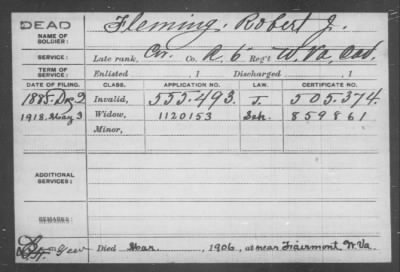 DEAD
NAME OF SOLDIER: Fleming, Robert J.
SERVICE: Late rank, Co. A, 6 Reg't W. Va. Cav.
TERM OF SERVICE: Enlisted , 1 Discharged , 1
DATE OF FILING. CLASS. APPLICATION NO. LAW. CERTIFICATE NO.
1885. Dec 2 Invalid, 555.493. J. 505.374.
1918. May 3 Widow, 1120153 859861
Minor,
ADDITIONAL SERVICES:
REMARKS:
Died Mar. , 1906, at near Fairmont, W. Va.